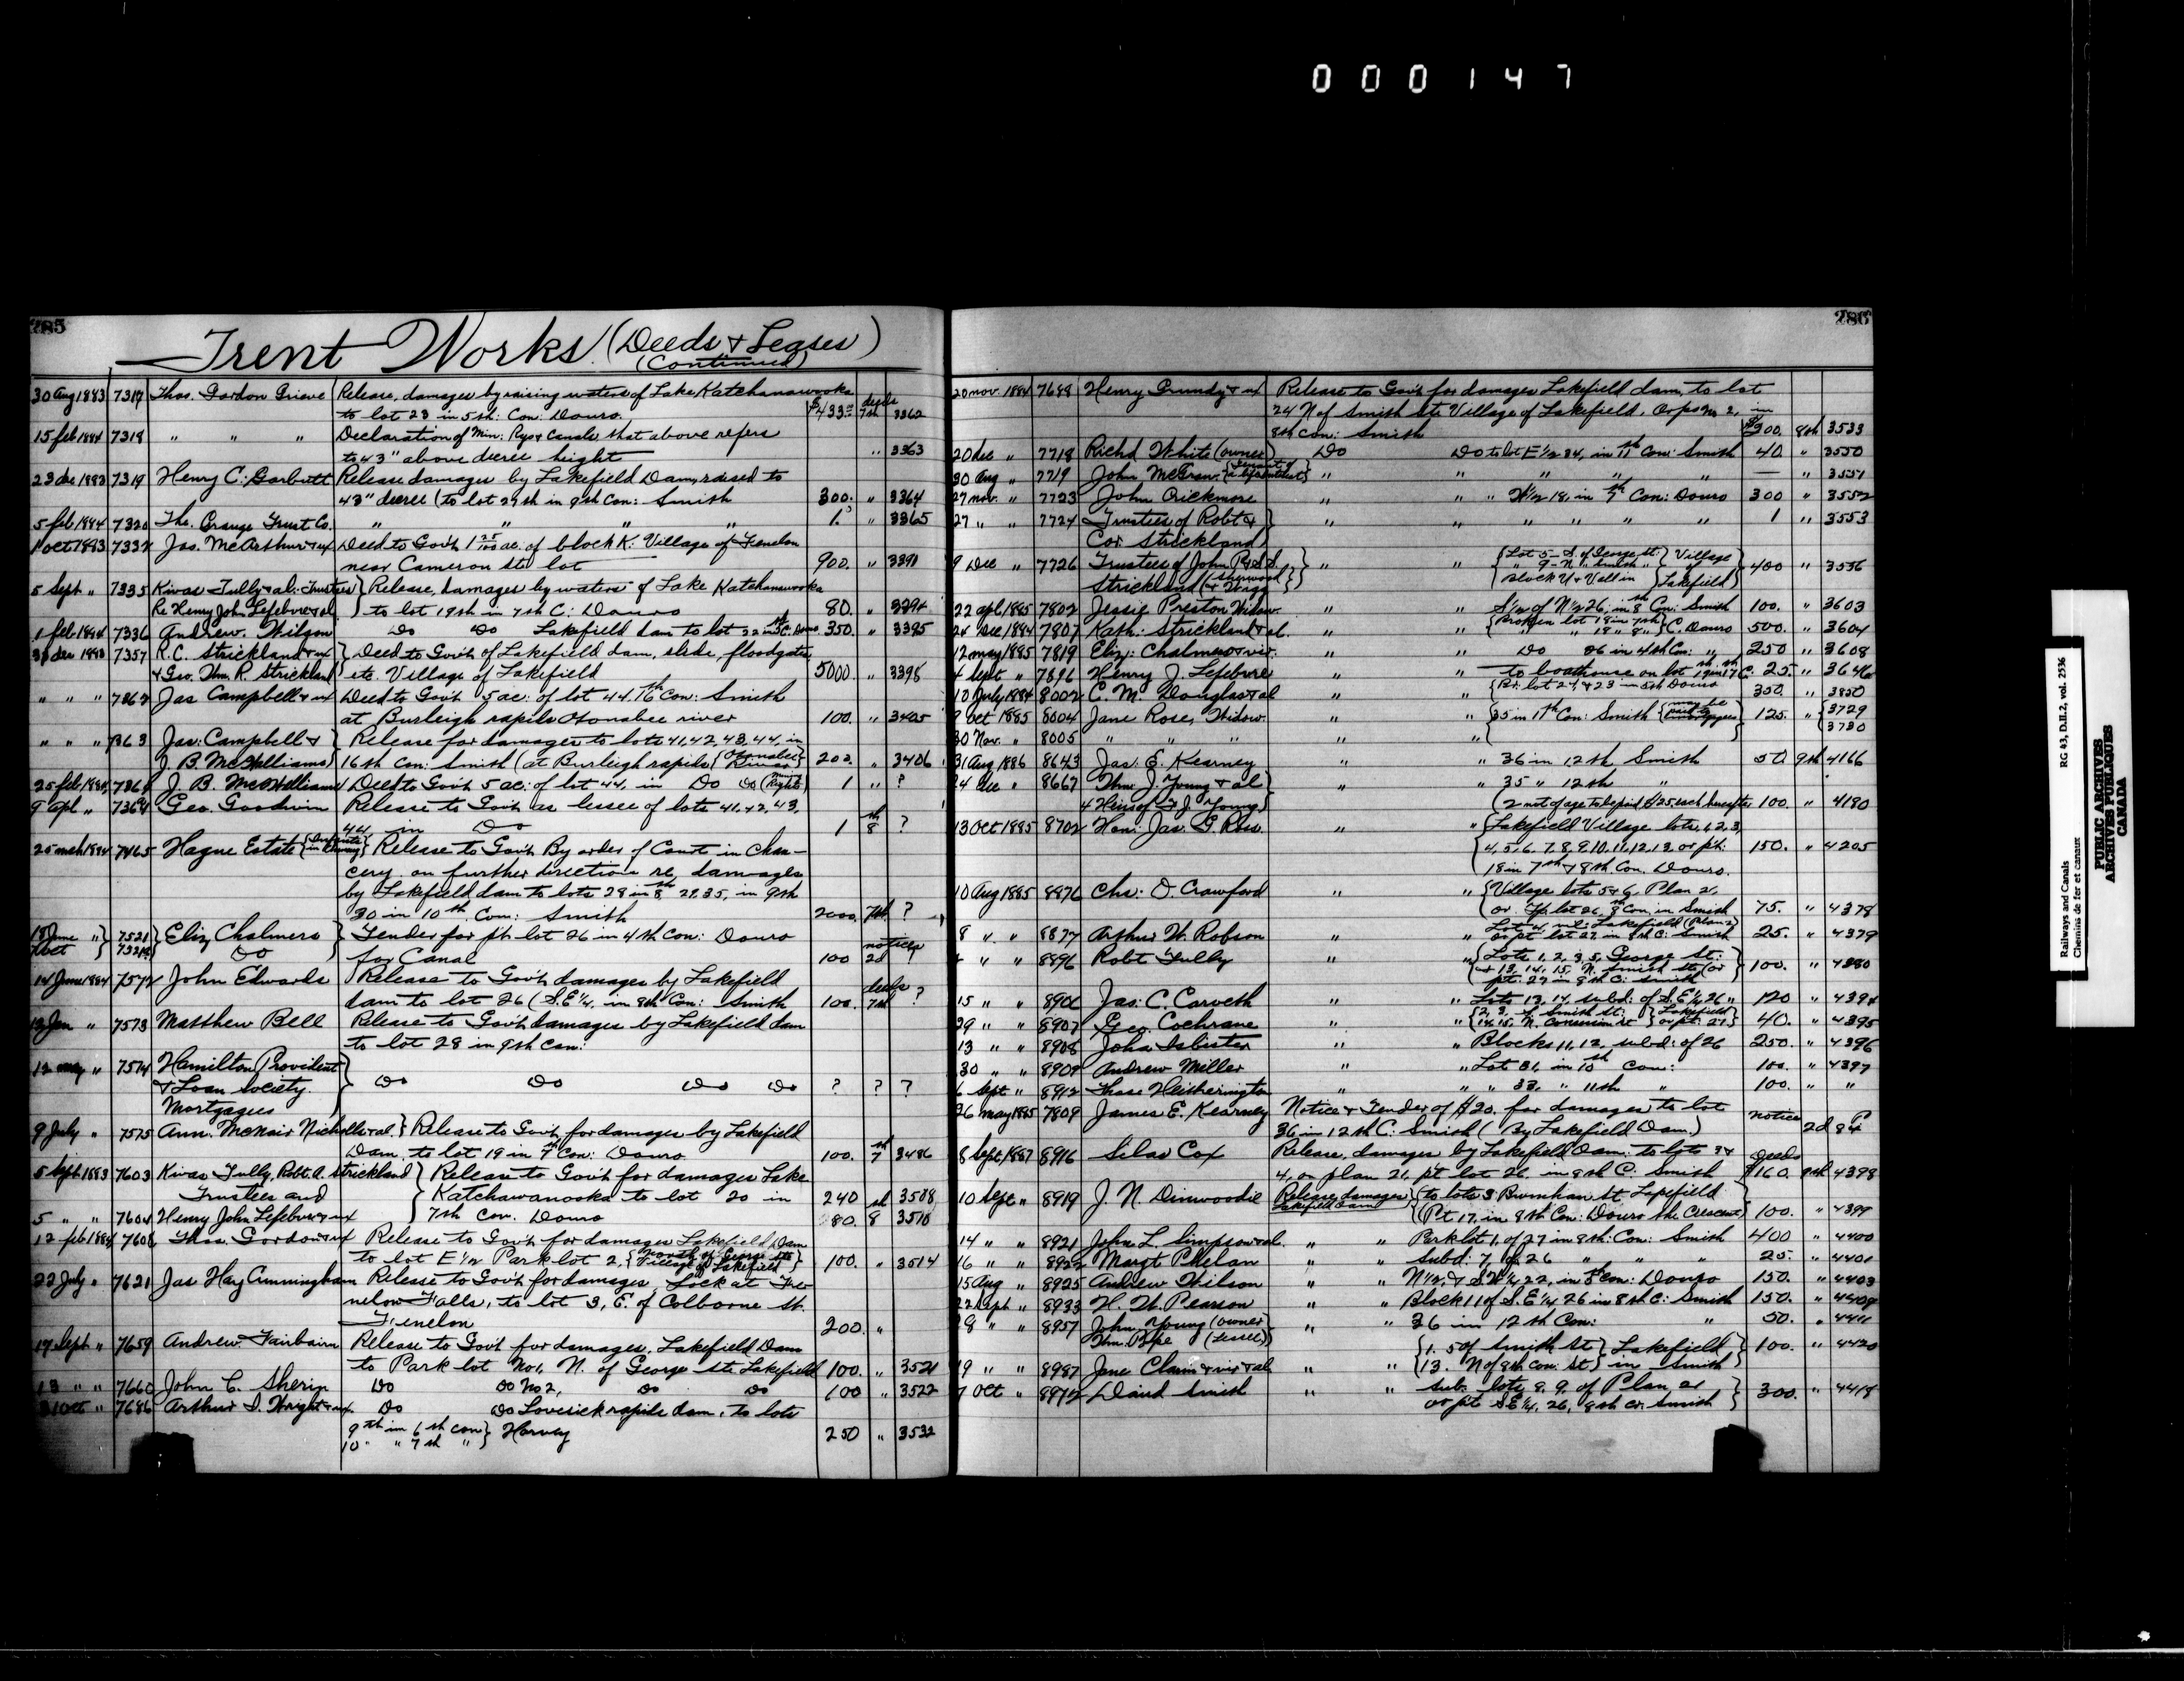 000147
285
Trent Works (Deeds & Leases)
(Continued)
30 Aug 1883 7317 Thos. Gordon Grieve Release, damages by raising waters of Lake Katchanawooka
to lot 23 in 5th: Con: Douro. $433 deeds 7th 3362
15 feb 1884 7318 " " " Declaration of Min: Rys & Canals that above refers
to 43" above decree height " 3363
23 dec 1883 7319 Henry C. Garbutt Release damages by Lakefield Dam, raised to
43" decree (to lot 29th in 9th Con: Smith 300. " 3364
5 feb 1884 7320 The Orange Trust Co. " " " " 1. " 3365
1 oct 1883 7332 Jas. McArthur & ux Deed to Govt 1 25/100 ac: of block K: Village of Fenelon
near Cameron st: lot 900. " 3391
5 Sept " 7335 Kivas Tully & al: Trustees } Release, damages by waters of Lake Katchanawooka
Re Henry John Lefebvre & al } to lot 19th in 7th C: Douro 80. " 3394
1 feb 1884 7336 Andrew Wilson Do Do Lakefield dam to lot 22 in 5th C. Douro 350. " 3395
dec 1883 7357 R. C. Strickland & ux } Deed to Govt of Lakefield dam, slide, floodgates,
& Geo. Wm. R. Strickland } etc. Village of Lakefield 5000. " 3398
" " " 7362 Jas Campbell & ux Deed to Govt 5 ac: of lot 44. 16th Con: Smith
at Burleigh rapids Otonabee river 100. " 3405
" " " 7363 Jas: Campbell & } Release for damages to lots 41, 42, 43, 44, in
J. B. McWilliams } 16th Con: Smith (at Burleigh rapids { Otonabee River } 200. " 3406
25 feb 1884 J. B. McWilliams Deed to Govt 5 ac: of lot 44, in Do Do (Rights) 1 " ?
9 apl " 7364 Geo. Goodwin Release to Govt as lessee of lots 41, 42, 43,
44 in Do 1 8th ?
25 mch 1884 7465 Hague Estate } Release to Govt By order of Court in Chan-
cery on further direction re, damages
by Lakefield dam to lots 28 in 8th 29, 35, in 9th
30 in 10th Con: Smith 2000. 7th ?
June " } 7521 } Eliz Chalmers } Tender for pt. lot 26 in 4th Con: Douro
Do } for Canal 100 notices 2d 9
14 June 1884 7572 John Edwards Release to Govt damages by Lakefield
dam to lot 26 (S.E 1/4, in 8th Con: Smith 100. deeds 7th ?
Jan " 7573 Matthew Bell Release to Govt damages by Lakefield dam
to lot 28 in 9th Con:
12 may " 7574 Hamilton Provident }
& Loan Society. } Do Do Do Do ? ? ?
Mortgagees }
9 July " 7575 Ann. McNair Nicholls & al. } Release to Govt, for damages by Lakefield
Dam, to lot 19 in 7th Con: Douro 100. 7th 3486
5 Sept 1883 7603 Kivas Tully, Robt. A. Strickland { Release to Govt for damages Lake
Trustees and { Katchawanooka to lot 20 in 240 3508
5 " " 7604 Henry John Lefebvre & ux { 7th Con. Douro 80. 8 3510
12 feb 1884 Thos. Gordon & ux Release to Govt for damages Lakefield Dam
to lot E 1/2 Park lot 2, { North of George sts Village of Lakefield } 100. " 3514
22 July " 7621 Jas Hay Cunningham Release to Govt for damages, Lock at Fe-
nelon Falls, to lot 3, E. of Colborne St.
Fenelon 200. "
17 Sept " 7659 Andrew Fairbairn Release to Govt for damages, Lakefield Dam
to Park lot No 1, N. of George sts Lakefield 100. " 3521
13 " " 7660 John C. Sherin Do Do No 2, Do Do 100 " 3522
Oct " 7686 Arthur S. Wright & ux Do Do Lovesick rapids dam, to lots
9th in 6th con } Harvey
10 " " 7th " } 250 " 3532
286
20 nov. 1884 7688 Henry Grundy & ux Release to Govt for damages Lakefield dam, to lot
24 N of Smith sts Village of Lakefield, in
8th Con: Smith $300. 8th 3533
20 dec " 7718 Richd White (owner) Do Do to lot E 1/2 34, in 11th Con: Smith 40. " 3550
30 Aug " 7719 John McGraw. " " " " " — " 3551
27 nov. " 7723 John Crickmore " " " W 1/2 18, in 7th Con: Douro 300 " 3552
27 " " 7724 Trustees of Robt & } " " " " " " 1 " 3553
Cor Strickland }
9 Dec " 7726 Trustees of John R & S. } " " { Lot 5 - S. of George st. } Village
Strickland (Sherwood & Wragg) } Block U & V all in } Lakefield } 400 " 3556
22 apl 1885 7802 Jessie Preston Widow. " " S 1/2 of N 1/2 26, in 8th Con: Smith 100. " 3603
24 Dec 1884 7807 Kath: Strickland & al. " " { Broken lot 18 in 7th
" " 18 " 8 " } C. Douro 500. " 3604
12 may 1885 7819 Eliz: Chalmers & vir. " " Do 26 in 4th Con: " 250 " 3608
4 Sept " 7896 Henry J. Lefebvre " " to boathouse on lot 19 in 7th C. 25. " 3646
10 July 1884 8002 C. M. Douglas & al " " { Pt: lot 24, & 23 in 5th Douro 350. " 3850
9 oct 1885 8004 Jane Rose, Widow. " " { 35 in 11th Con: Smith { may be paid to mortgagees } 125. " { 3729
30 Nov. " 8005 " " " " " { { 3730
31 Aug 1886 8643 Jas: E. Kearney " " 36 in 12th Smith 50. 9th 4166
24 dec " 8667 Wm. J. Young & al } " " 35 " 12th "
4 Heirs of F. J. Young } (2 not of age to be paid $25 each hereafter 100. " 4180
13 Oct 1885 8702 Hon: Jas. G. Ross. " " { Lakefield Village lots, 1, 2, 3,
4, 5, 6, 7, 8, 9, 10, 11, 12, 13. or pt: 150. " 4205
18 in 7th & 8th Con. Douro.
10 Aug 1885 8876 Chs: D. Crawford " " { Village lots 5 & 6, Plan 21,
or lot 26, 8th Con, in Smith 75. " 4378
8 " " 8877 Arthur W. Robson " " Lot 4 Lakefield (Plan 2)
or pt lot 27 in 8th C: Smith 25. " 4379
" " 8896 Robt Tully " " { Lots 1, 2, 3, 5, George St:
& 13, 14, 15, N. Smith st (or } 100. " 4380
pt: 27 in 8th C: Smith
15 " " Jas: C. Carveth " " Lots 13, 14, subd: of S.E 1/4 26 " 120 " 4394
29 " " 8907 Geo. Cochrane " " { 2, 3, of Smith st: } Lakefield
14, 15, N. Concession st } or pt: 27 } 40. " 4395
13 " " 8908 John Isbister " " Blocks 11, 12, subd: of 26 250. " 4396
30 " " 8909 Andrew Miller " " Lot 31, in 10th Con: 100. " 4397
6 Sept " 8912 Thos Hetherington " " " 33, " 11th " 100. " "
26 may 1885 7809 James E. Kearney Notice & Tender of $20. for damages to lot
36 in 12th C: Smith (By Lakefield Dam.) notice 2d 84
8 Sept 1887 8916 Silas Cox Release, damages by Lakefield Dam: to lots 3 &
4, on plan 21, pt lot 26. in 8th C: Smith deeds $160. 9th 4398
10 Sept " 8919 J. N. Dinwoodie Release damages Lakefield Dam { (to lots 3 Burnham St Lakefield
(Pt 17, in 8th Con: Douro the Crescent) 100. " 4399
14 " " 8921 John L. Simpson & al. " " Park lot 1, of 27 in 8th: Con: Smith 400 " 4400
16 " " 8922 Margt Phelan " " subd: 7, of 26 " " " 25. " 4401
15 Aug " 8925 Andrew Wilson " " N 1/2, & S.W 1/4 22, in 5th Con: Douro 150. " 4403
22 Sept " 8933 H. W. Pearson " " Block 11 of S.E 1/4 26 in 8th C: Smith 150. " 4409
28 " " 8957 John Young (owner) } " " 36 in 12th Con: " 50. " 4411
Wm. Pope (lessee) }
19 " " 8987 Jane Claxin & vir & al " " { 1. S of Smith St } Lakefield }
{ 13. N of 8th Con. St } in Smith } 100. " 4420
7 Oct " David Smith " " Sub. lots 8. 9. of Plan 21 }
or pt S.E 1/4, 26, 8th Co: Smith } 300. " 4418
Railways and Canals RG 43, D.II.2, vol. 2536
Chemins de fer et canaux
PUBLIC ARCHIVES
ARCHIVES PUBLIQUES
CANADA